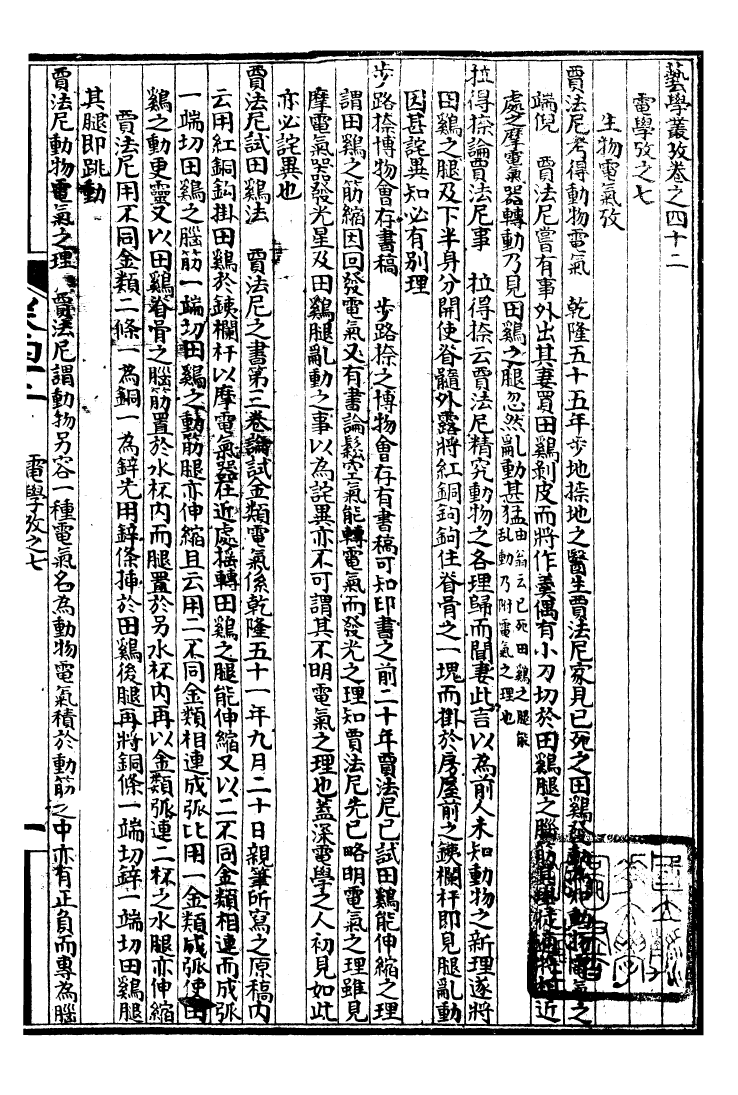 藝學叢攷卷之四十二
電學攷之七
生物電氣攷
賈法尼考得動物電氣 乾隆五十五年步地捺地之醫生賈法尼家見已死之田鷄發動為動物電氣之
端倪 賈法尼嘗有事外出其妻買田鷄剝皮而將作羹偶有小刀切於田鷄腿之腦筋其將近
處之摩電氣器轉動乃見田鷄之腿忽然亂動甚猛由翁云已死田鷄之腿能亂動乃附電氣之理也
拉得捺論賈法尼事 拉得捺云賈法尼精究動物之各理歸而聞妻此言以為前人未知動物之新理遂將
田鷄之腿及下半身分開使脊髓外露將紅銅鉤鉤住脊骨之一塊而掛於房屋前之鐵欄杆即見腿亂動
因甚詫異知必有別理
步路捺博物會存書稿 步路捺之博物會存有書稿可知印書之前二十年賈法尼已試田鷄能伸縮之理
謂田鷄之筋縮因回發電氣又有書論鬆空氣能轉電氣而發光之理知賈法尼先已略明電氣之理雖見
摩電氣器發光星及田鷄腿亂動之事以為詫異亦不可謂其不明電氣之理也蓋深電學之人初見如此
亦必詫異也
賈法尼試田鷄法 賈法尼之書第三卷論試金類電氣係乾隆五十一年九月二十日親筆所寫之原稿內
云用紅銅鉤掛田鷄於鐵欄杆以摩電氣器在近處搖轉田鷄之腿能伸縮又以二不同金類相連而成弧
一端切田鷄之腦筋一端切田鷄之動筋腿亦伸縮且云用二不同金類相連成弧比用一金類成弧使田
鷄之動更靈又以田鷄脊骨之腦筋置於水杯內而腿置於另水杯內再以金類弧連二杯之水腿亦伸縮
賈法尼用不同金類二條一為銅一為鋅先用鋅條插於田鷄後腿再將銅條一端切鋅一端切田鷄腿
其腿即跳動
賈法尼動物電氣之理 賈法尼謂動物另容一種電氣名為動物電氣積於動筋之中亦有正負而專為腦
電學攷之七